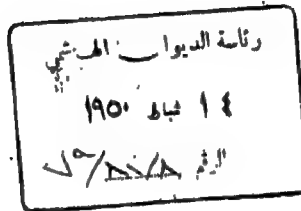 رئاسة الديوان الهاشمي
١٤ شباط ١٩٥٠
الرقم